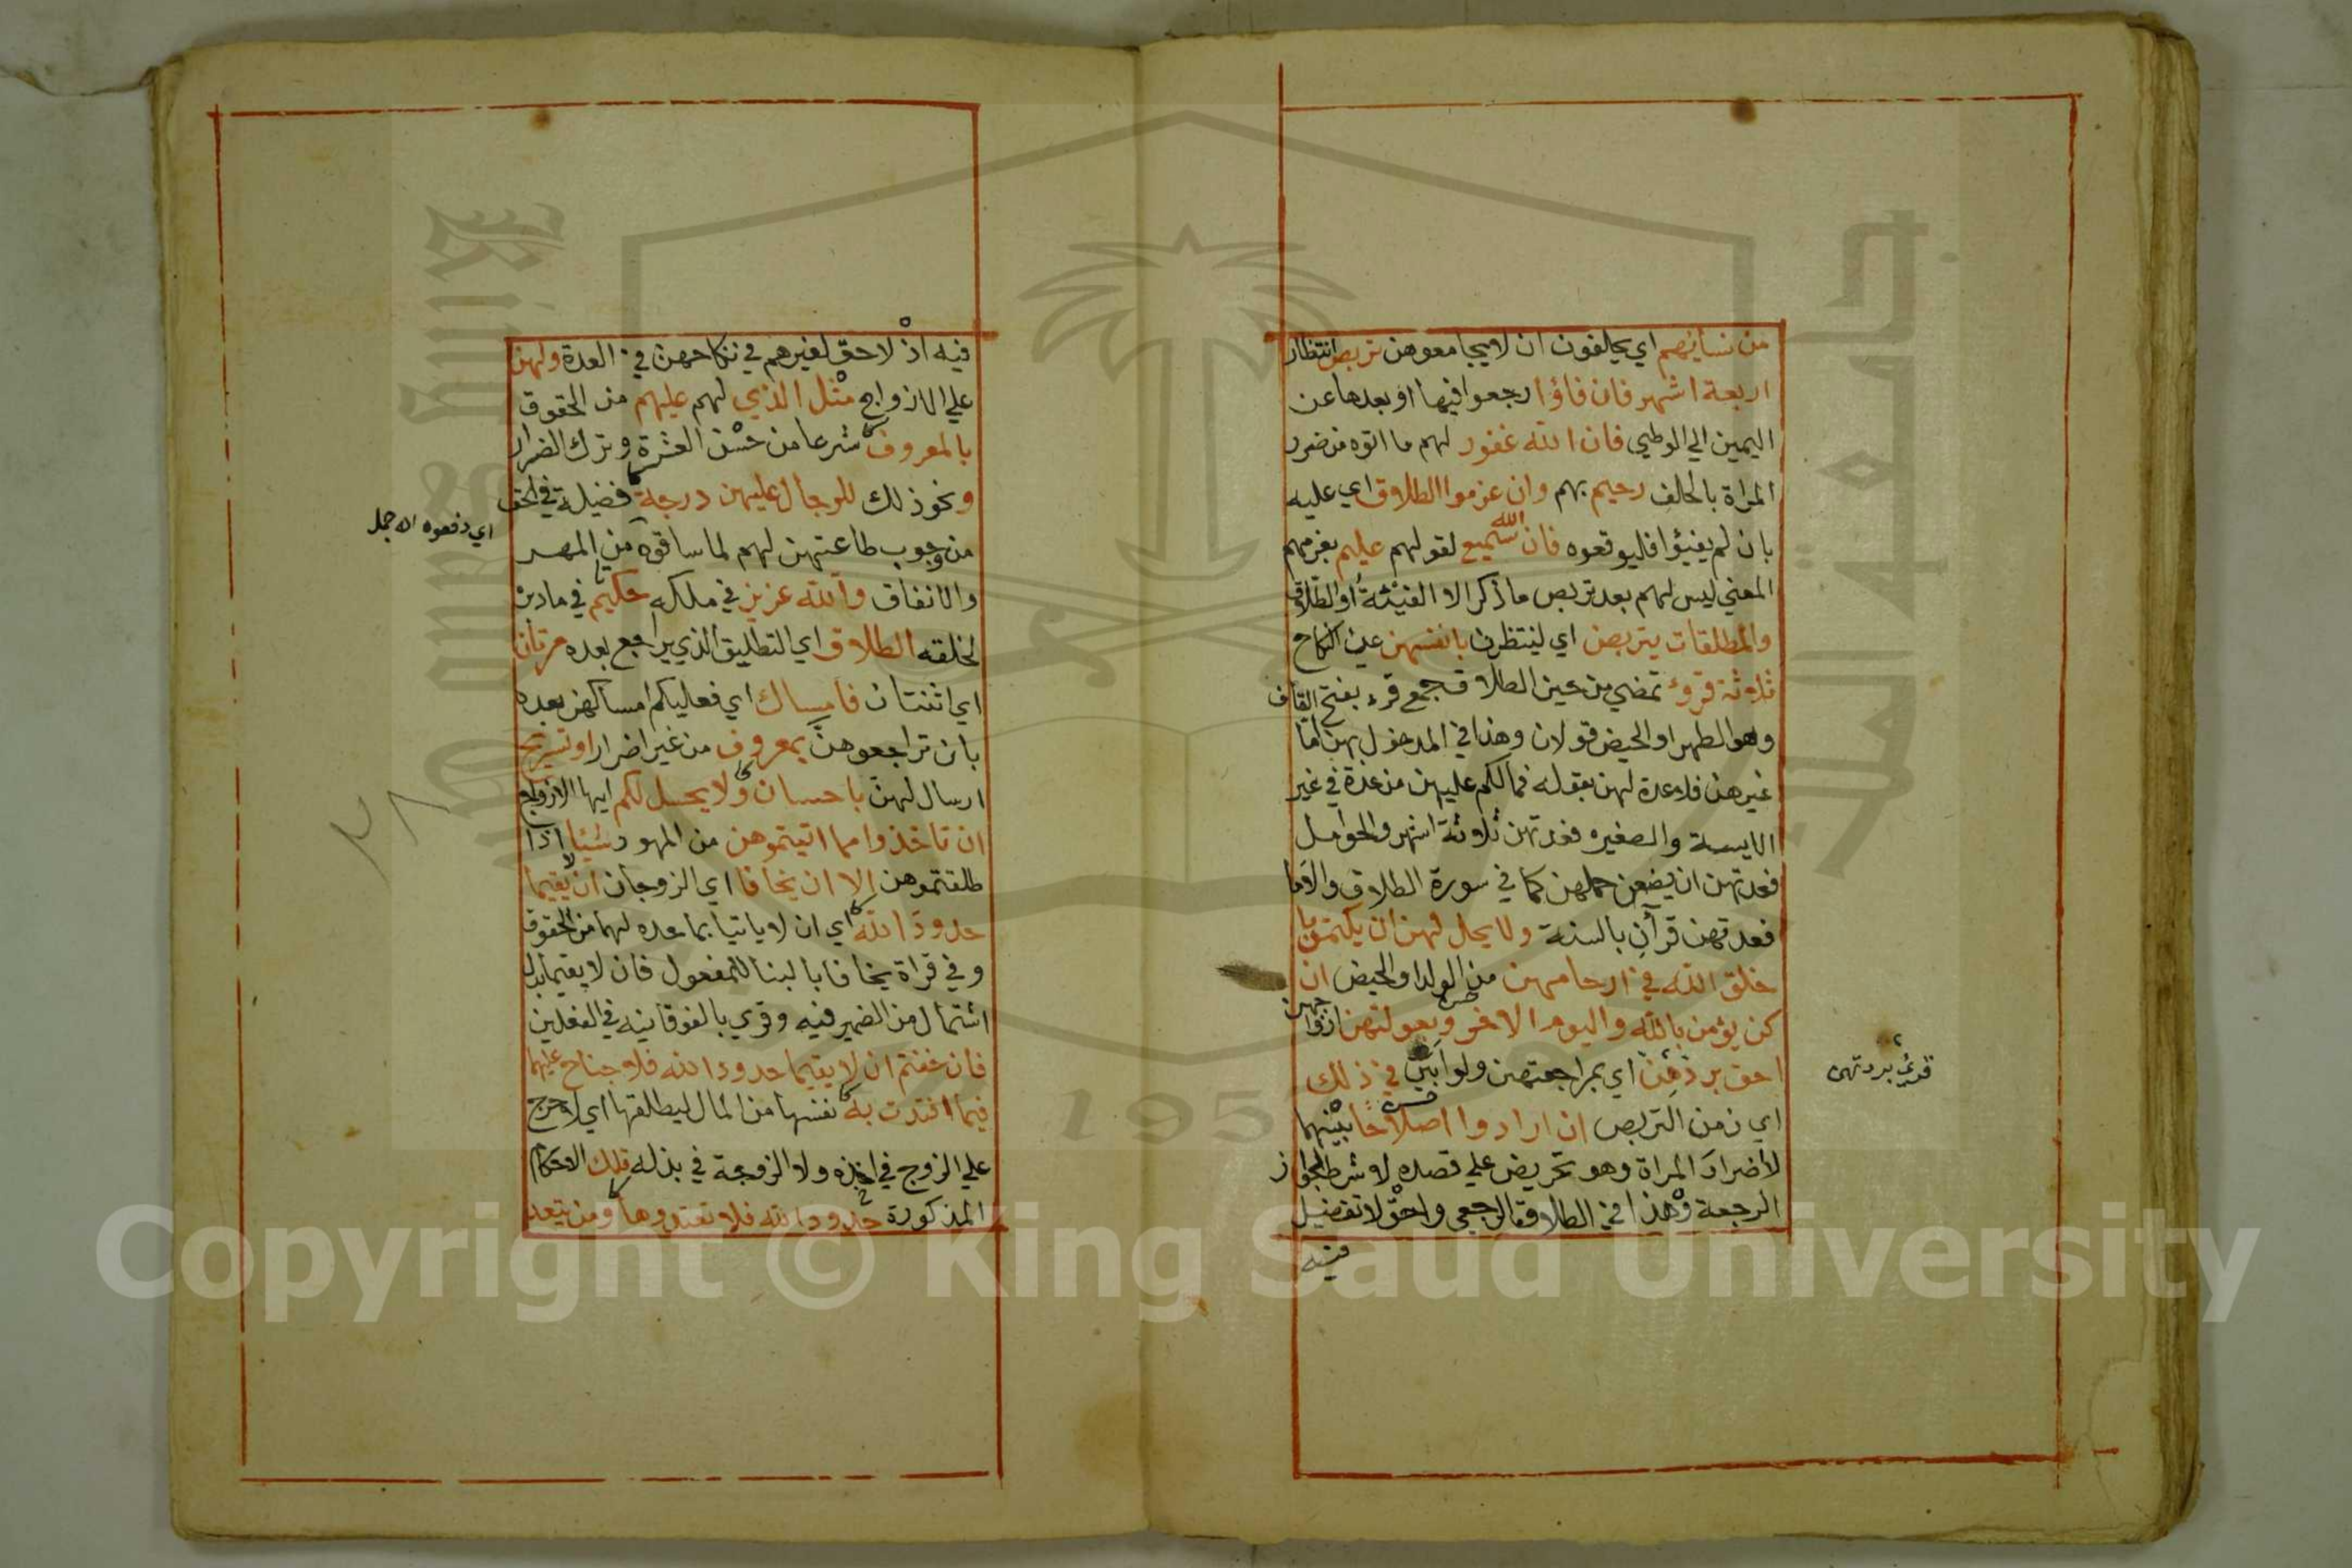 من نسائهم اي يحلفون ان لا يجامعوهن تربص انتظار
اربعة اشهر فان فاؤا رجعوا فيها او بعدها عن
اليمين الي الوطي فان الله غفور لهم ما اتوه من ضرر
المراة بالحلف رحيم بهم وان عزموا الطلاق اي عليه
بان لم يفيئوا فليوقعوه فان الله سميع لقولهم عليم بعزمهم
المعني ليس لهم بعد تربص ما ذكر الا الفيئة او الطلاق
والمطلقات يتربصن اي لينتظرن بانفسهن عن النكاح
ثلاثة قروء تمضي من حين الطلاق جمع قرء بفتح القاف
وهو الطهر او الحيض قولان وهذا في المدخول بهن اما
غيرهن فلا عدة لهن بقوله فما لكم عليهن من عدة في غير
الايسة والصغيره فعدتهن ثلاثة اشهر والحوامل
فعدتهن ان يضعن حملهن كما في سورة الطلاق والاما
فعدتهن قرآن بالسنة ولا يحل لهن ان يكتمن ما
خلق الله في ارحامهن من الولد او الحيض ان
كن يؤمن بالله واليوم الاخر وبعولتهن ازواجهن
احق بردهن اي بمراجعتهن ولو ابين في ذلك
قرئ بردتهن
اي زمن التربص ان ارادوا اصلاحا بينهما
لاضرار المراة وهو تحريض علي قصده لا شرط لجواز
الرجعة وهذا في الطلاق الرجعي واحق لا تفضيل
فيه
فيه اذ لا حق لغيرهم في نكاحهن في العدة ولهن
علي الازواج مثل الذي لهم عليهم من الحقوق
بالمعروف شرعا من حسن العشرة وترك الضرار
ونحو ذلك للرجال عليهن درجة فضيلة في الحق
من وجوب طاعتهن لهم لما ساقوه من المهر
اي دفعوه اه جمل
والانفاق والله عزيز في ملكه حكيم في ما دبره
لخلقه الطلاق اي التطليق الذي يراجع بعده مرتان
اي اثنتان فامساك اي فعليكم امساكهن بعده
بان تراجعوهن بمعروف من غير اضرار او تسريح
ارسال لهن باحسان ولا يحل لكم ايها الازواج
ان تاخذوا مما اتيتموهن من المهور شيئا اذا
طلقتموهن الا ان يخافا اي الزوجان ان لا يقيما
حدود الله اي ان لا ياتيا بما حده لهما من الحقوق
وفي قراة يخافا بالبنا للمفعول فان لا يقيما بدل
اشتمال من الضمير فيه وقري بالفوقانية في الفعلين
فان خفتم ان لا يقيما حدود الله فلا جناح عليهما
فيما افتدت به نفسها من المال ليطلقها اي لا حرج
علي الزوج في اخذه ولا الزوجة في بذله تلك الاحكام
المذكورة حدود الله فلا تعتدوها ومن يتعد
٢٨
Copyright © King Saud University
1957